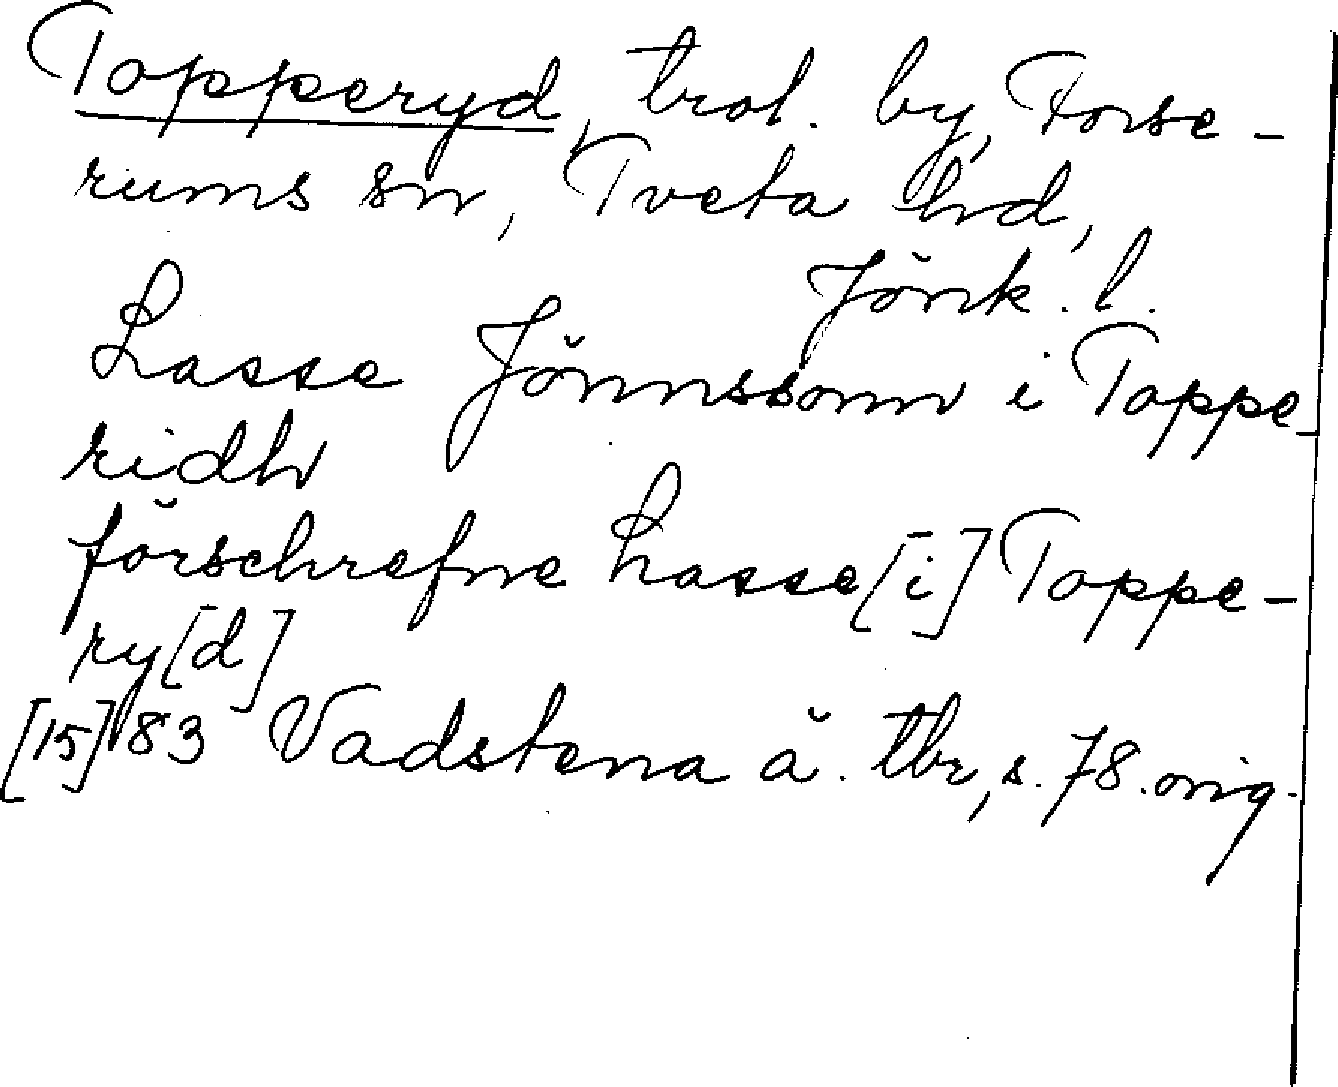 Topperyd, trol. by, Forse-
rums sn, Tveta hd,
Jönk. l.
Lasse Jönnssonn i Toppe-
ridh
förschrefne Lasse [i] Toppe-
ry[d]
[15]83 Vadstena ä. tbr, s. 78. orig.